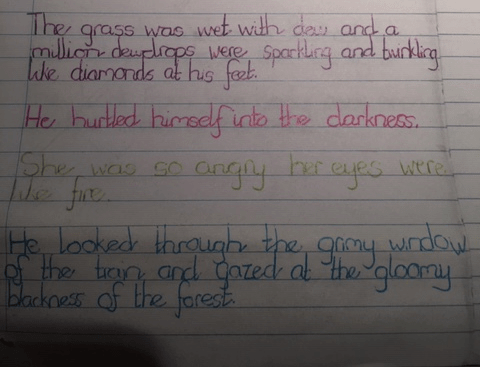 The grass was wet with dew and a
million dewdrops were sparkling and twinkling
like diamonds at his feet.
He hurtled himself into the darkness.
She was so angry her eyes were
like fire.
He looked through the grimy window
of the train and gazed at the gloomy
blackness of the forest.